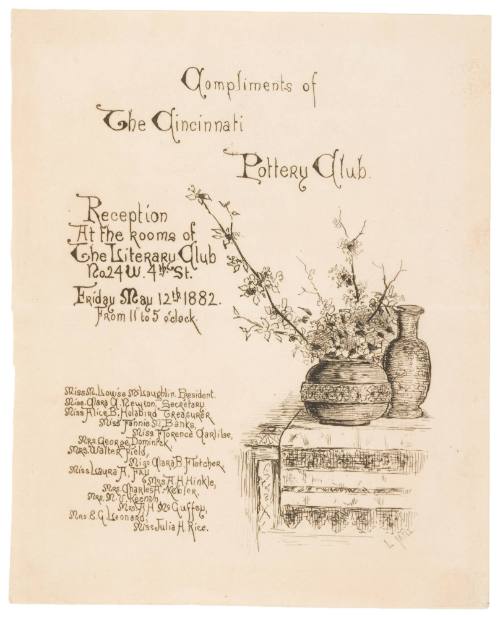 Compliments of
The Cincinnati
Pottery Club.
Reception
At the rooms of
The Literary Club
No. 24 W. 4th St.
Friday May 12th 1882.
From 11 to 5 o'clock.
Miss M. Louise McLaughlin. President.
Miss. Clara C. Newton. Secretary
Miss Alice B. Holabird Treasurer
Miss Fannie M. Banks,
Miss Florence Carlisle,
Mrs George Dominick,
Mrs. Walter Field,
Miss Clara B. Fletcher,
Miss Laura A. Fry
Mrs A. H. Hinkle,
Mrs. Charles A. Kebler,
Mrs. M. V. Keenan
Mrs A. H. McGuffey,
Mrs E. G. Leonard,
Miss Julia H. Rice.